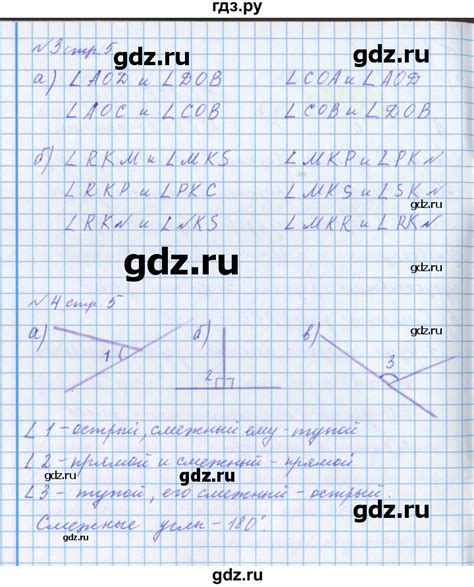 гдз.ру
№3 стр.5
gdz.ru
а) ∠AOD и ∠DOB ∠COA и ∠AOD
∠AOC и ∠COB ∠COB и ∠DOB
gdz.ru gdz.ru
б) ∠RKM и ∠MKS ∠MKP и ∠PKN
∠RKP и ∠PKC ∠MKS и ∠SKN
∠RKN и ∠NKS ∠MKR и ∠RKN
gdz.ru
gdz.ru
№4 стр.5
а) б) в)
1 2 3
gdz.ru gdz.ru
∠1 - острый, смежный ему - тупой
∠2 - прямой и смежный - прямой
gdz.ru
∠3 - тупой, его смежный - острый.
Смежные углы - 180°.
gdz.ru
gdz.ru